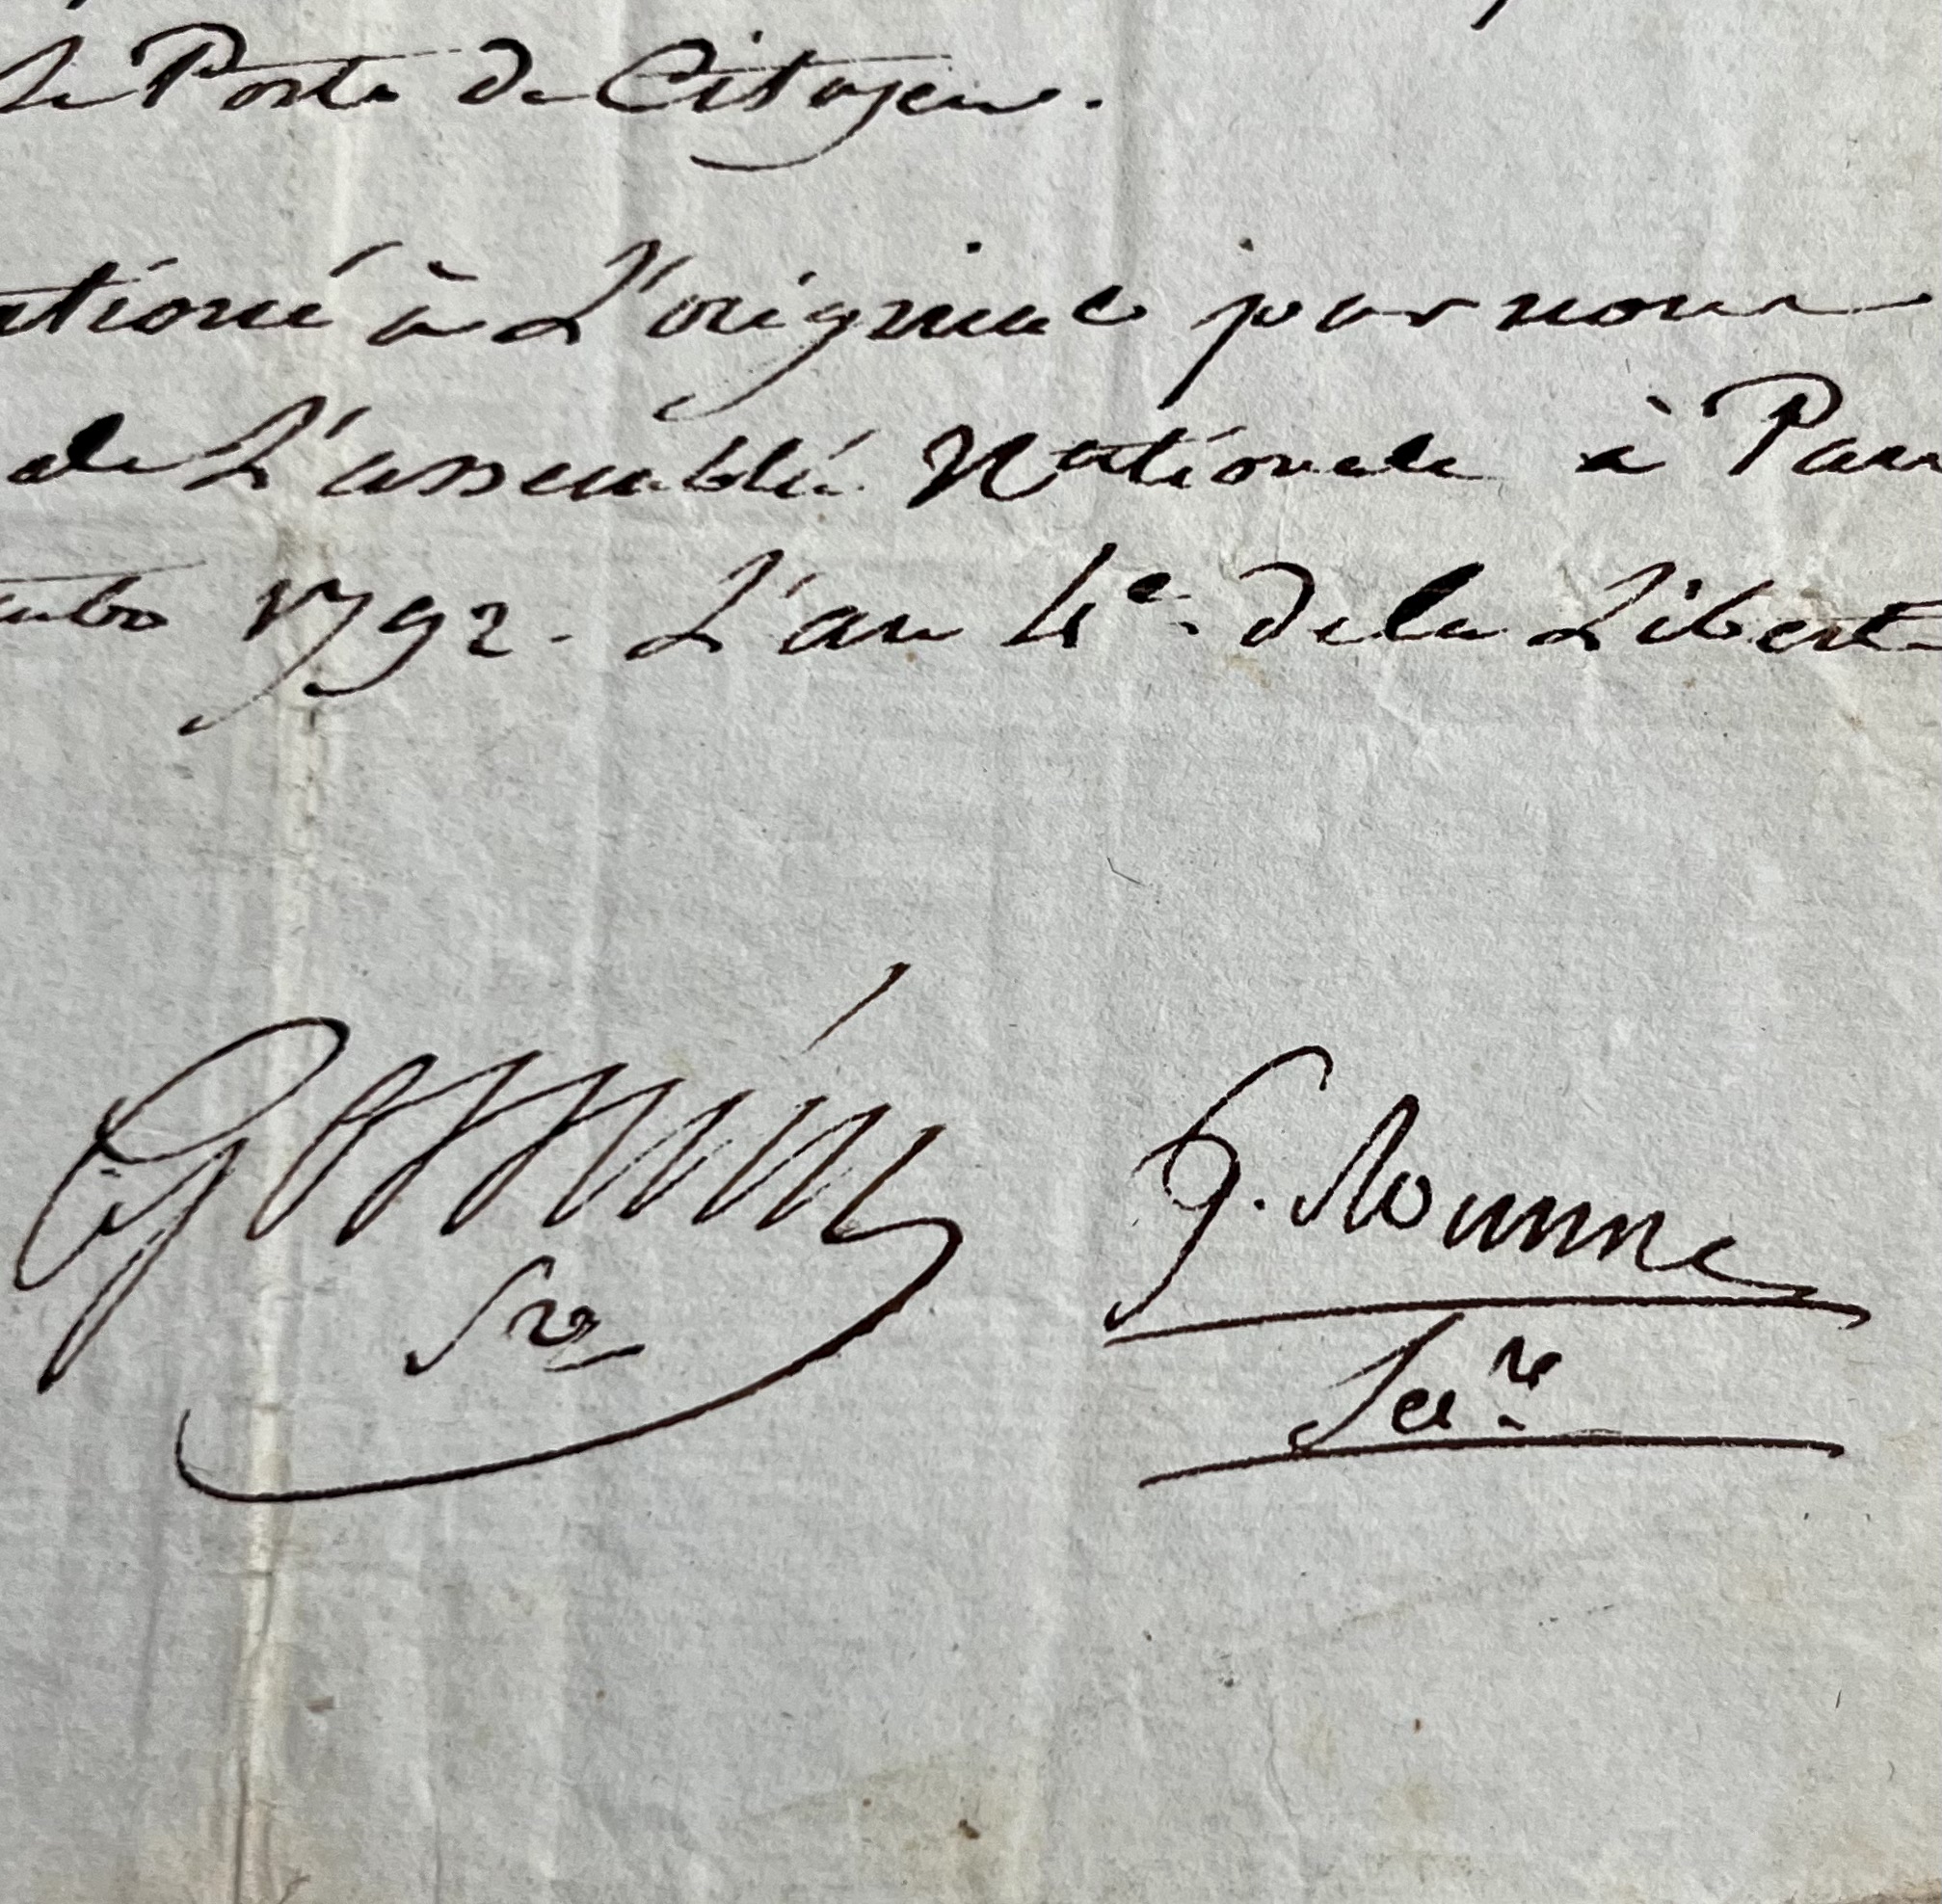 le Poste de Citoyen.
ationé à L'original par nous
de L'assemblée Nationale à Paris
embre 1792. L'an 4e. de la Libert
Gossuin
Sre
G. Romme
Secre